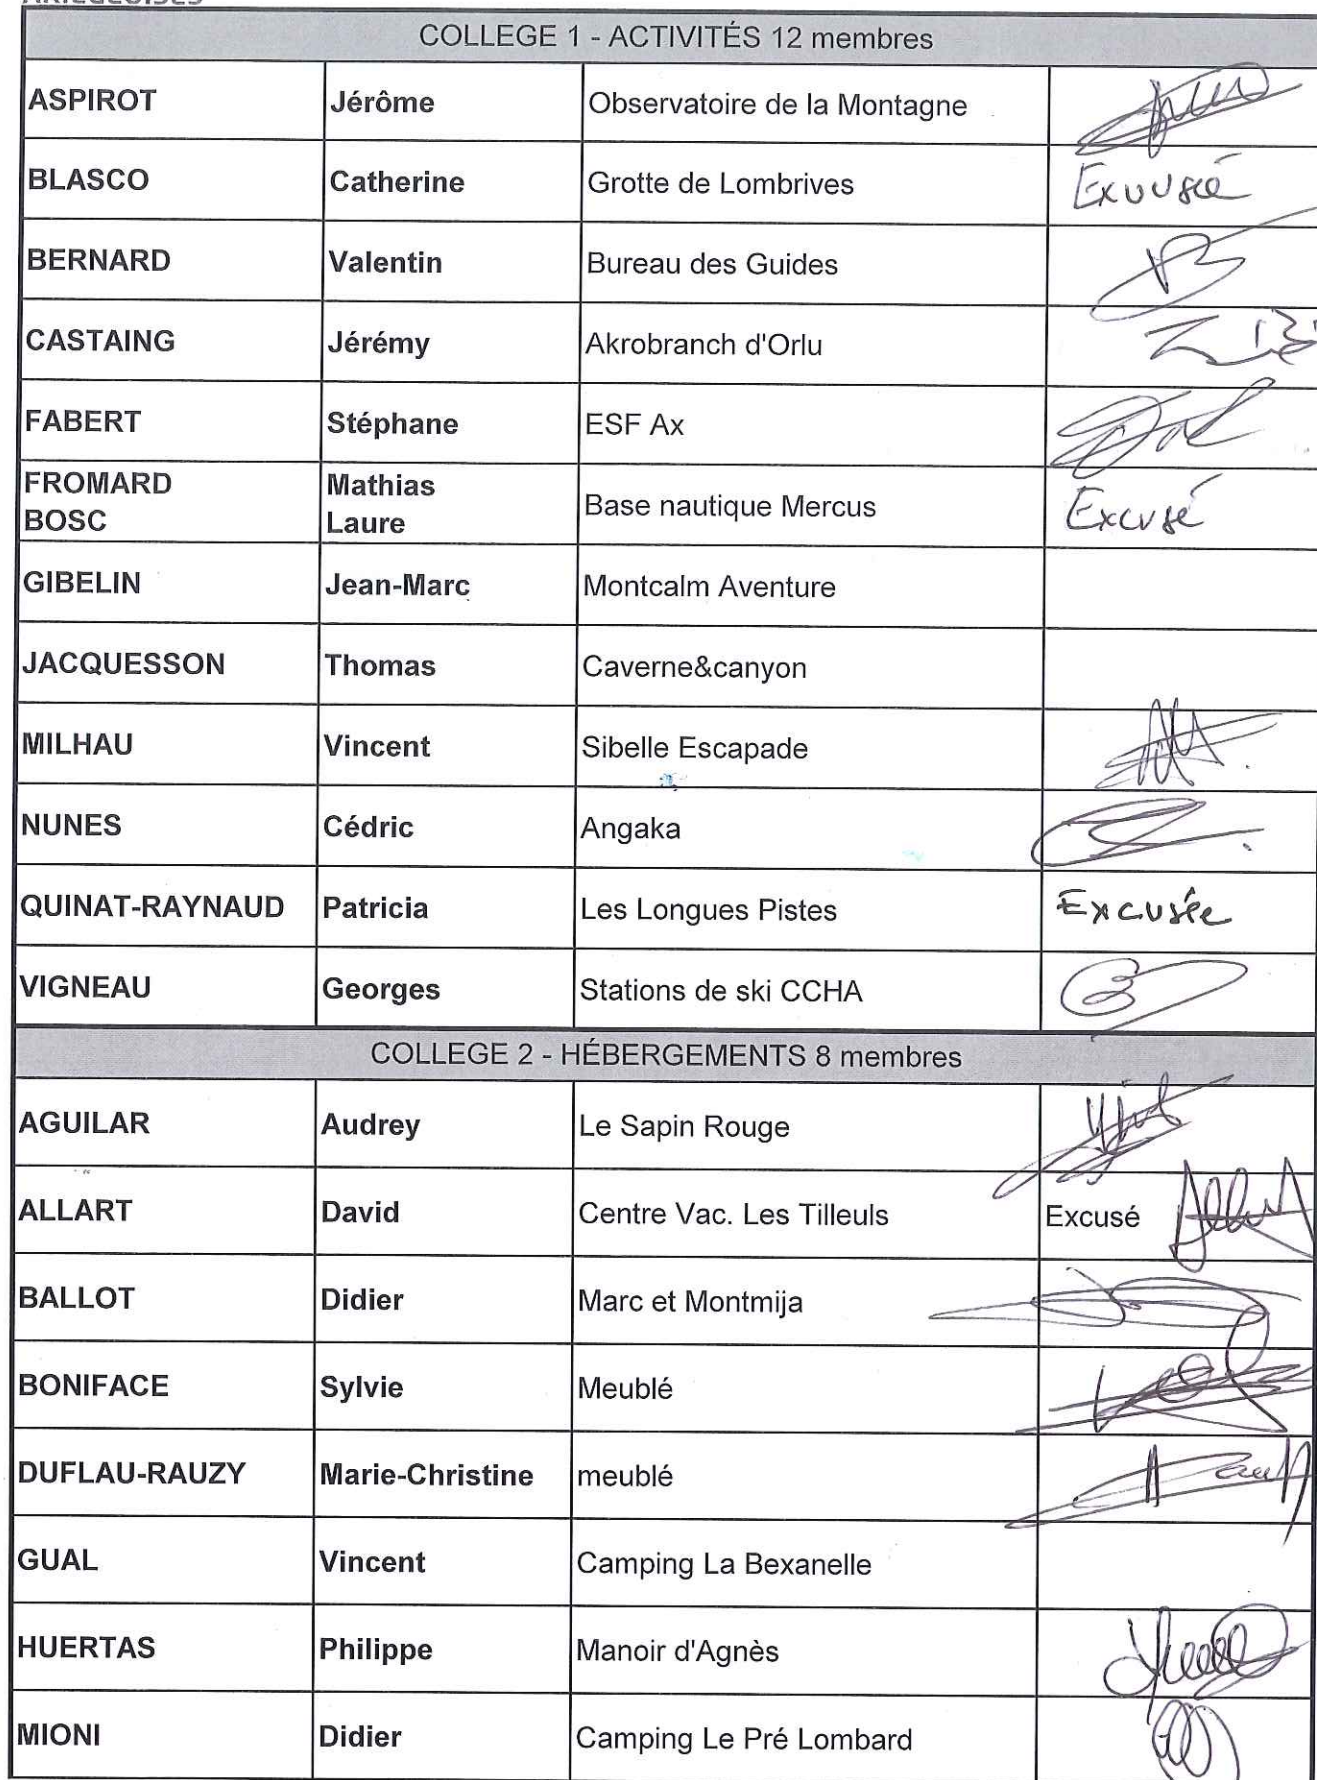 COLLEGE 1 - ACTIVITÉS 12 membres
ASPIROT Jérôme Observatoire de la Montagne
BLASCO Catherine Grotte de Lombrives Exuusée
BERNARD Valentin Bureau des Guides
CASTAING Jérémy Akrobranch d'Orlu
FABERT Stéphane ESF Ax
FROMARD Mathias
BOSC Laure
Base nautique Mercus Excusé
GIBELIN Jean-Marc Montcalm Aventure
JACQUESSON Thomas Caverne&canyon
MILHAU Vincent Sibelle Escapade
NUNES Cédric Angaka
QUINAT-RAYNAUD Patricia Les Longues Pistes Excusée
VIGNEAU Georges Stations de ski CCHA
COLLEGE 2 - HÉBERGEMENTS 8 membres
AGUILAR Audrey Le Sapin Rouge
ALLART David Centre Vac. Les Tilleuls Excusé
BALLOT Didier Marc et Montmija
BONIFACE Sylvie Meublé
DUFLAU-RAUZY Marie-Christine meublé
GUAL Vincent Camping La Bexanelle
HUERTAS Philippe Manoir d'Agnès
MIONI Didier Camping Le Pré Lombard